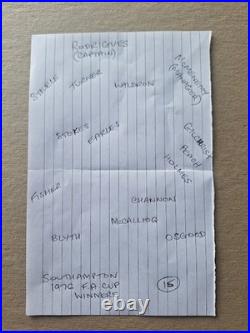 RODRIGUES
(CAPTAIN)
STEELE
TURNER
WALDRON
McMENEMY
(MANAGER)
STOKES
EARLES
GILCHRIST
PEACH
HOLMES
FISHER
CHANNON
McCALLIOG
BLYTH
OSGOOD
SOUTHAMPTON
1976 F.A. CUP
WINNERS
15